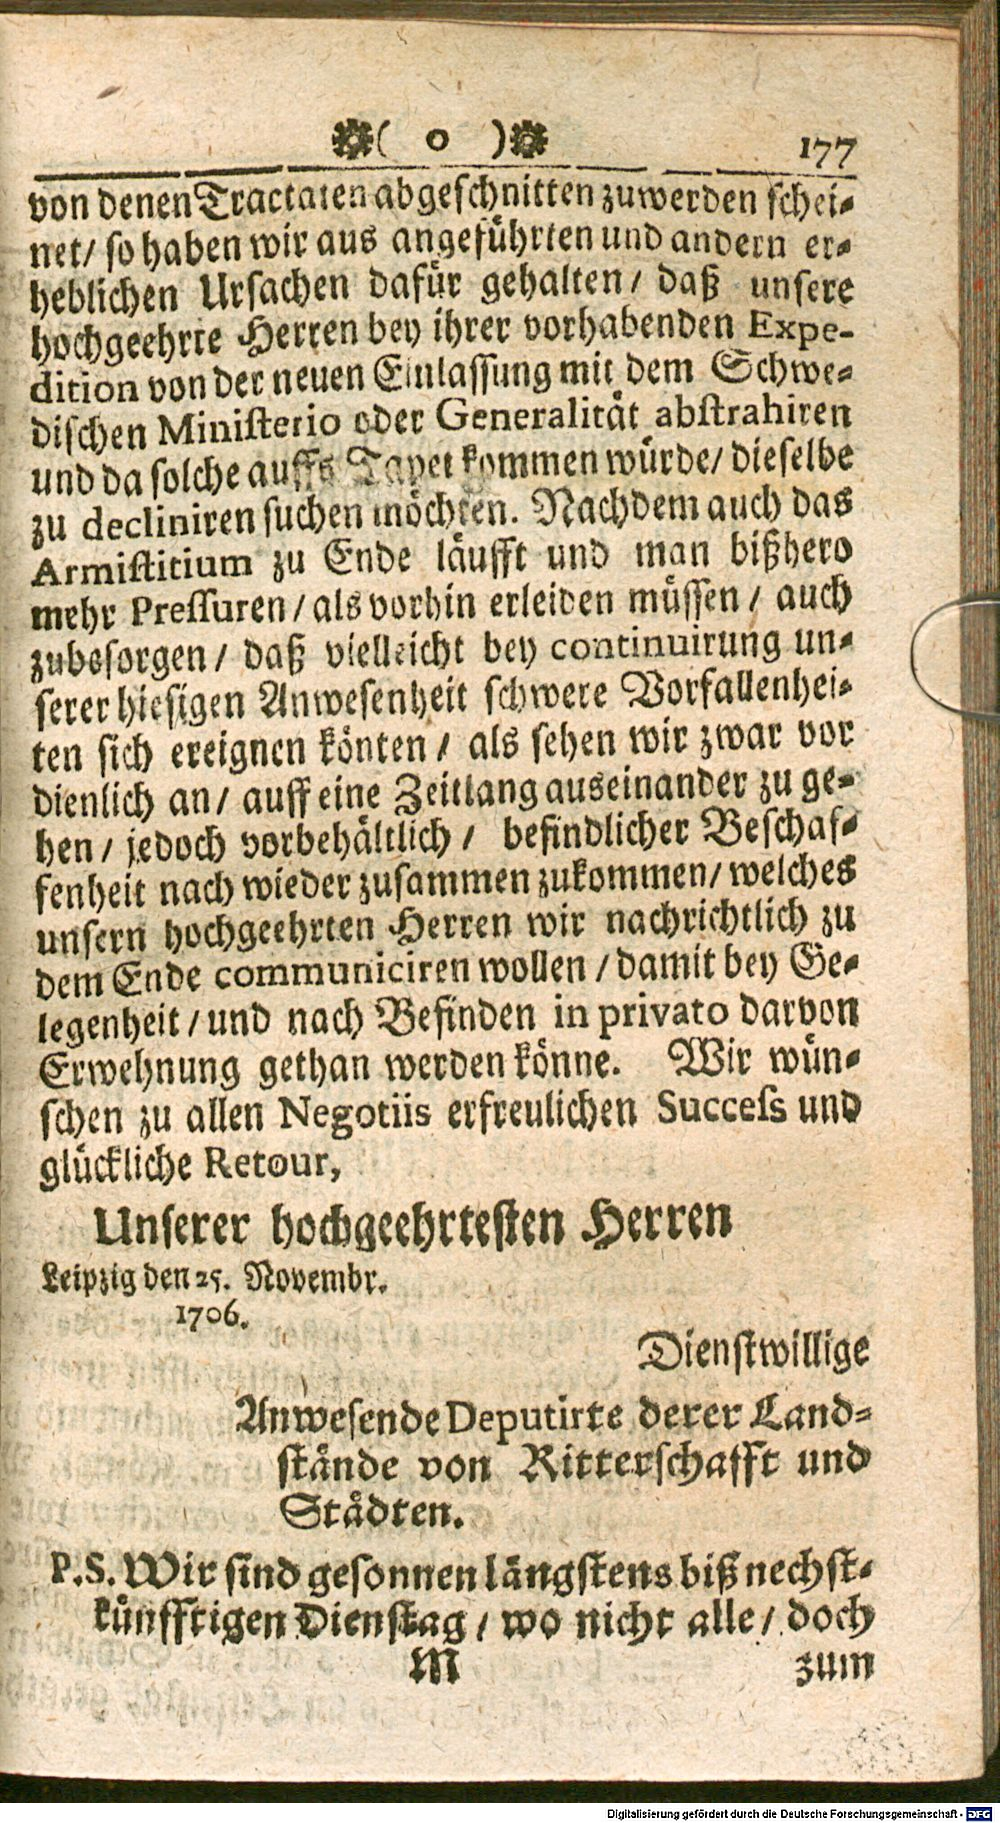 ( o ) 177
von denen Tractaten abgeschnitten zuwerden schei-
net/ so haben wir aus angeführten und andern er-
heblichen Ursachen dafür gehalten/ daß unsere
hochgeehrte Herren bey ihrer vorhabenden Expe-
dition von der neuen Einlassung mit dem Schwe-
dischen Ministerio oder Generalität abstrahiren
und da solche auffs Tapet kommen würde/ dieselbe
zu decliniren suchen möchten. Nachdem auch das
Armistitium zu Ende läufft und man bißhero
mehr Pressuren/ als vorhin erleiden müssen/ auch
zubesorgen/ daß vielleicht bey continuirung un-
serer hiesigen Anwesenheit schwere Vorfallenhei-
ten sich ereignen könten/ als sehen wir zwar vor
dienlich an/ auff eine Zeitlang auseinander zu ge-
hen/ jedoch vorbehältlich/ befindlicher Beschaf-
fenheit nach wieder zusammen zukommen/ welches
unsern hochgeehrten Herren wir nachrichtlich zu
dem Ende communiciren wollen/ damit bey Ge-
legenheit/ und nach Befinden in privato darvon
Erwehnung gethan werden könne. Wir wün-
schen zu allen Negotiis erfreulichen Success und
glückliche Retour,
Unserer hochgeehrtesten Herren
Leipzig den 25. Novembr.
1706.
Dienstwillige
Anwesende Deputirte derer Land-
stände von Ritterschafft und
Städten.
P.S. Wir sind gesonnen längstens biß nechst-
künfftigen Dienstag/ wo nicht alle/ doch
M zum
Digitalisierung gefördert durch die Deutsche Forschungsgemeinschaft - DFG